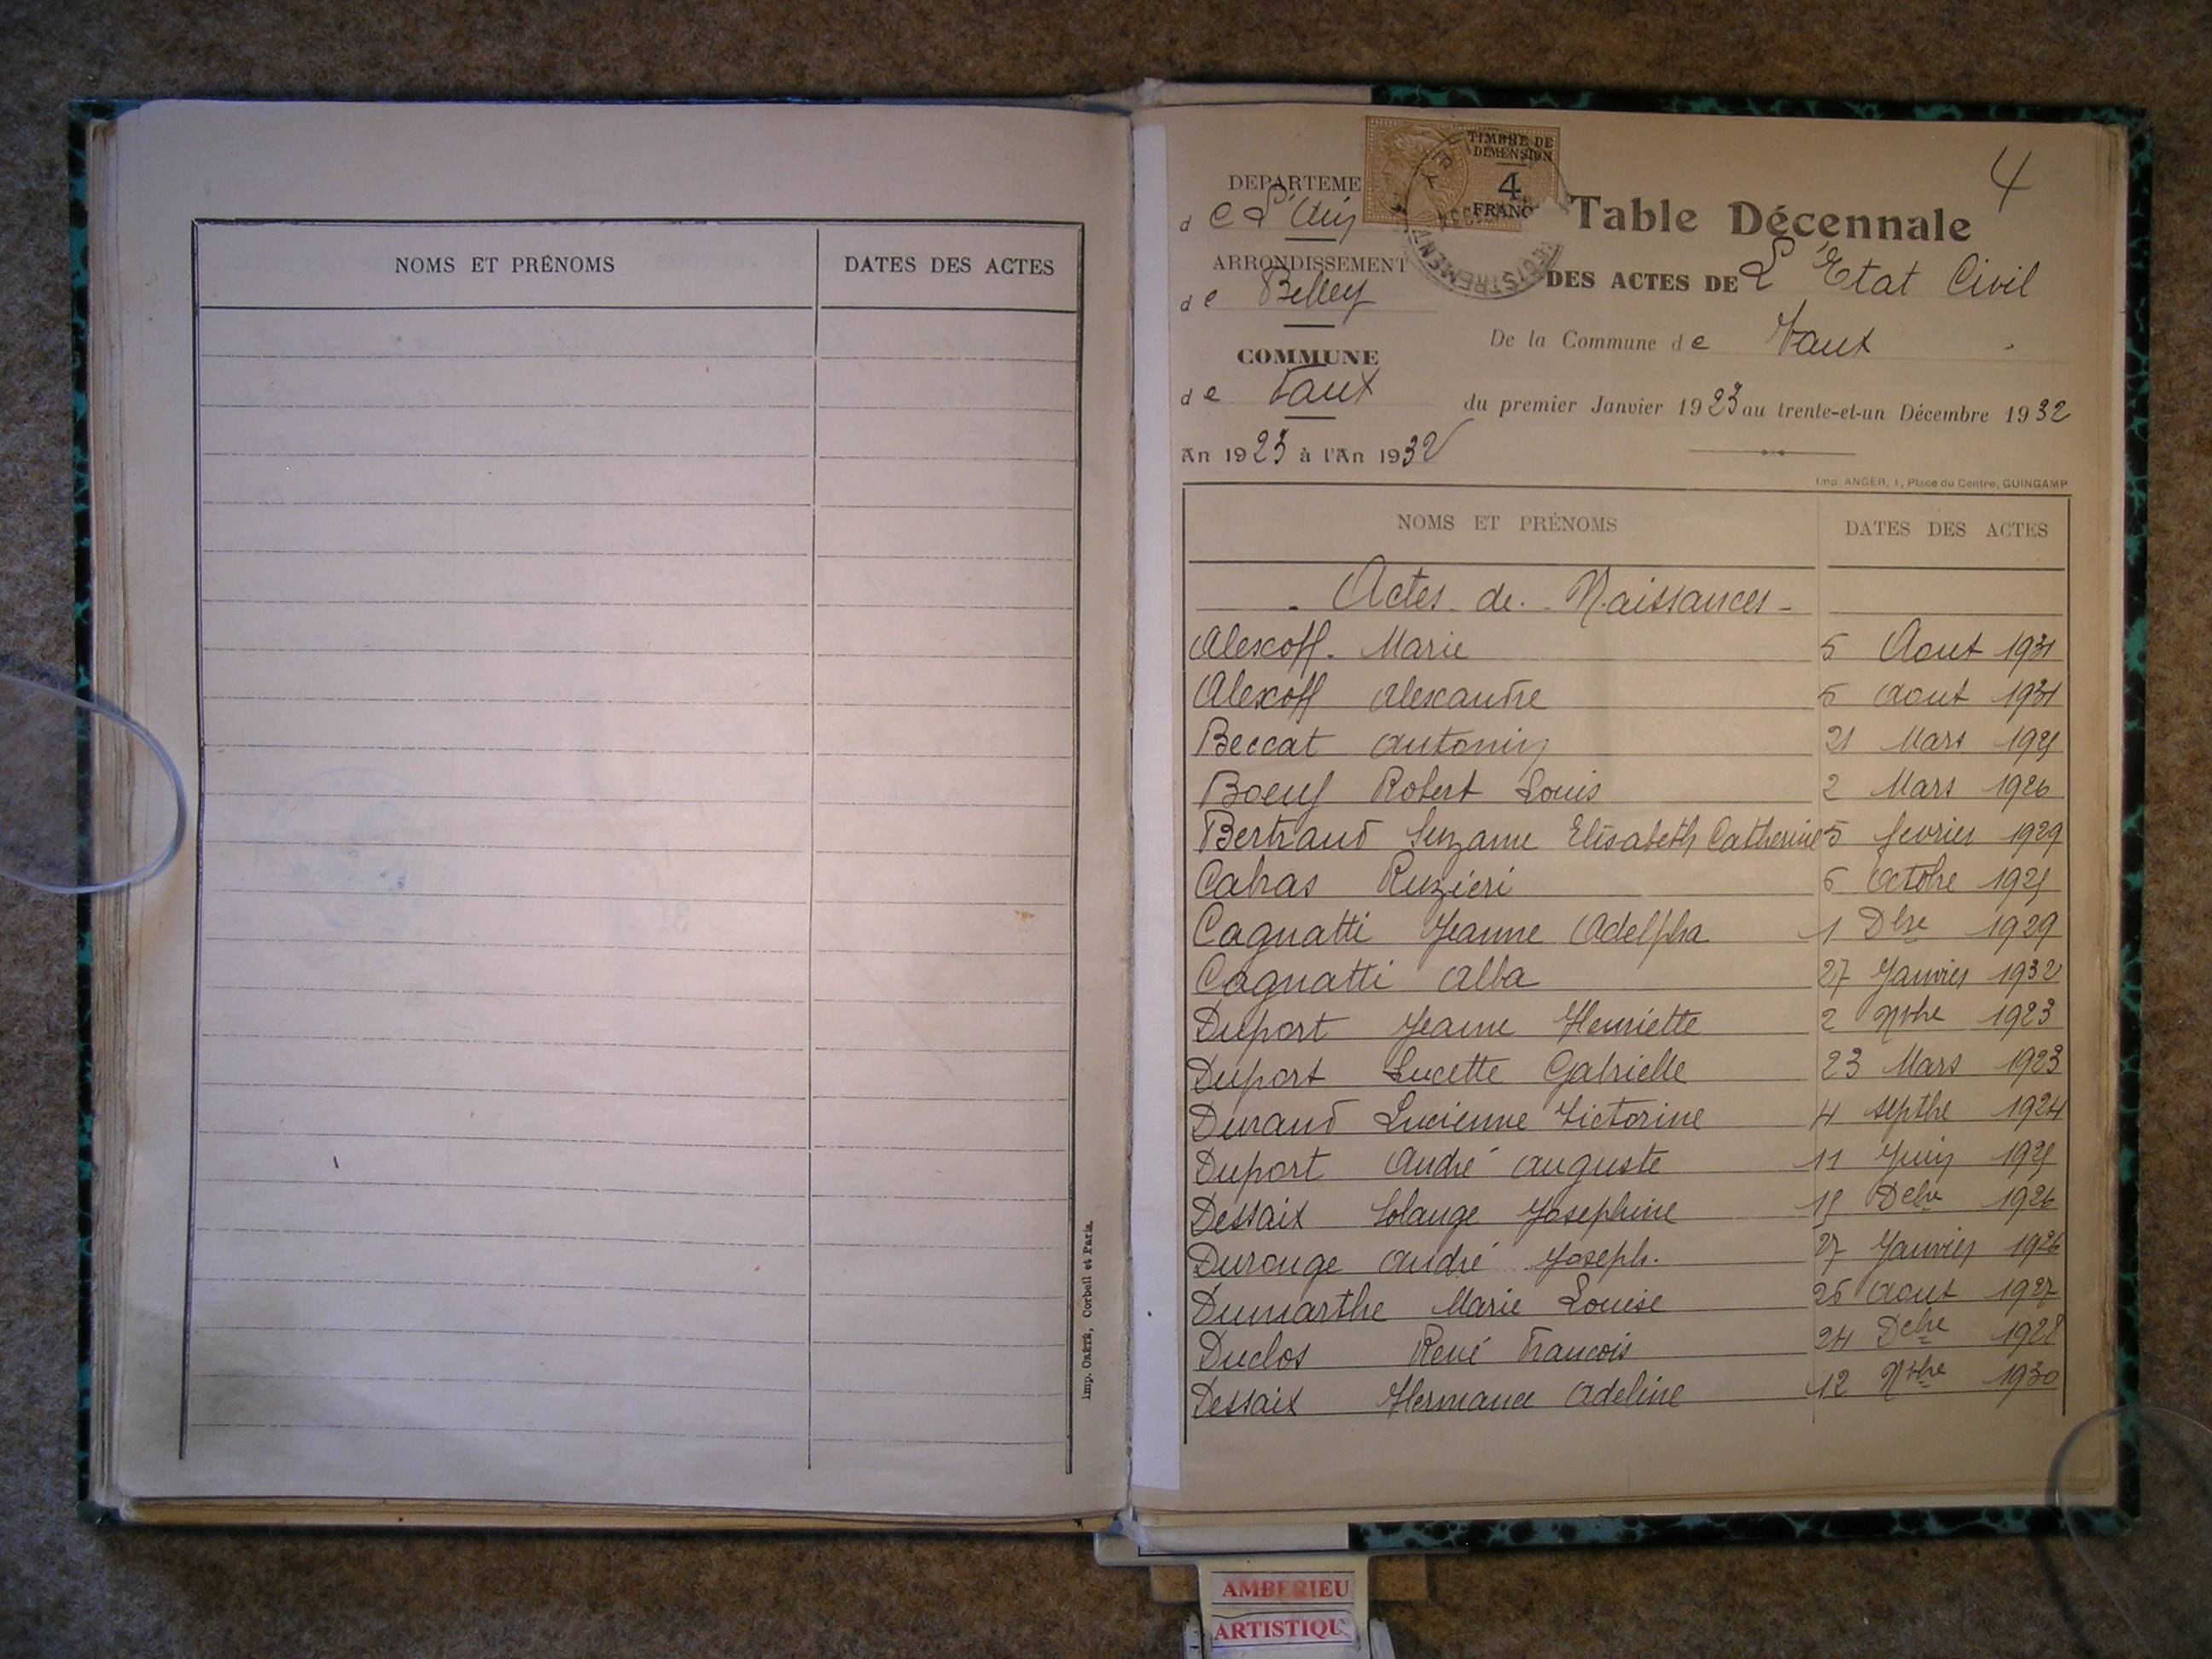 NOMS ET PRÉNOMS
DATES DES ACTES
Imp. CRÉTÉ, Corbeil et Paris.
4
TIMBRE DE
DIMENSION
4
FRANC
DEPARTEME
de L'Ain
ARRONDISSEMENT
de Belley
COMMUNE
de Vaux
An 1923 à l'An 1932
Table Décennale
DES ACTES DE L'Etat Civil
De la Commune de Vaux
du premier Janvier 1923 au trente-et-un Décembre 1932
Imp ANGER, 1, Place du Centre, GUINGAMP
NOMS ET PRÉNOMS DATES DES ACTES
Actes de Naissances
Alexoff Marie 5 Aout 1931
Alexoff Alexandre 5 Aout 1931
Beccat Antonin 21 Mars 1925
Boeuf Robert Louis 2 Mars 1926
Bertrand Suzanne Elisabeth Catherine 5 fevrier 1929
Cabras Ruziéri Octobre 1925
Cagnatti Jeanne Adelpha 1 Dbre 1929
Cagnatti Alba 27 Janvier 1932
Duport Jeanne Henriette 2 Nbre 1923
Duport Lucette Gabrielle 23 Mars 1923
Durand Lucienne Victorine 4 septbe 1924
Duport André Auguste 11 Juin 1925
Dessaix Solange Josephine 15 Debre 1926
Durouge André Joseph. 27 Janvier 1926
Dumarthe Marie Louise Aout 1927
Duclos René Francois 24 Debre 1928
Dessaix Hermance Adeline 12 Nbre 1930
AMBERIEU
ARTISTIQU